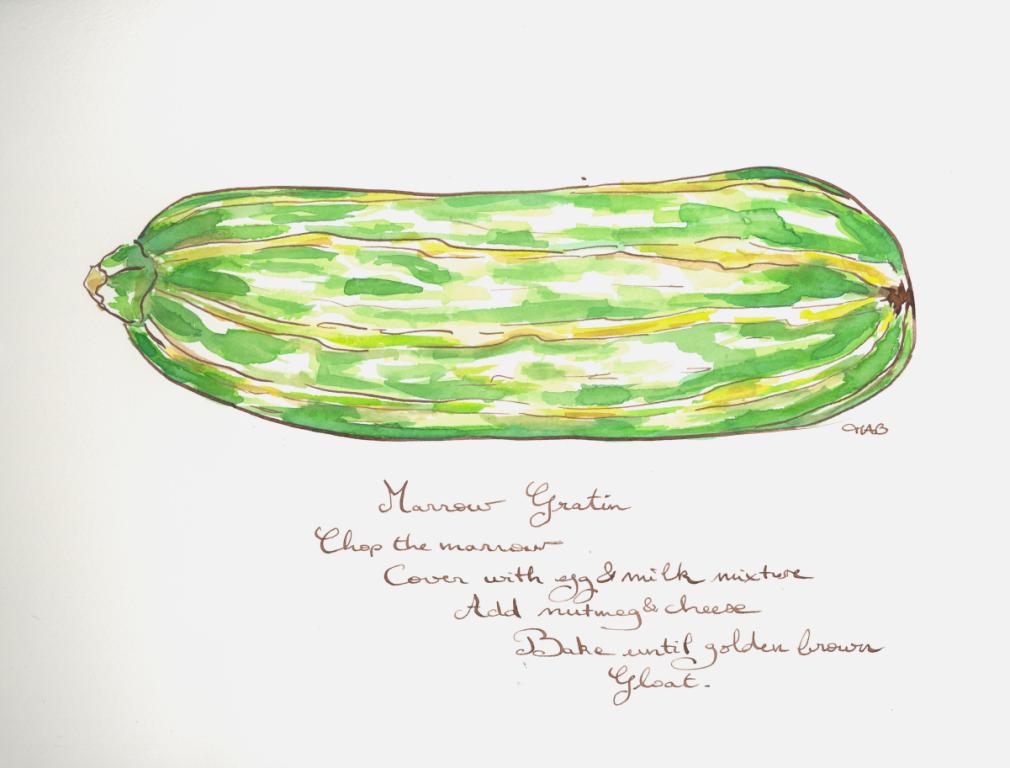 Marrow Gratin
Chop the marrow
Cover with egg & milk mixture
Add nutmeg & cheese
Bake until golden brown
Gloat.